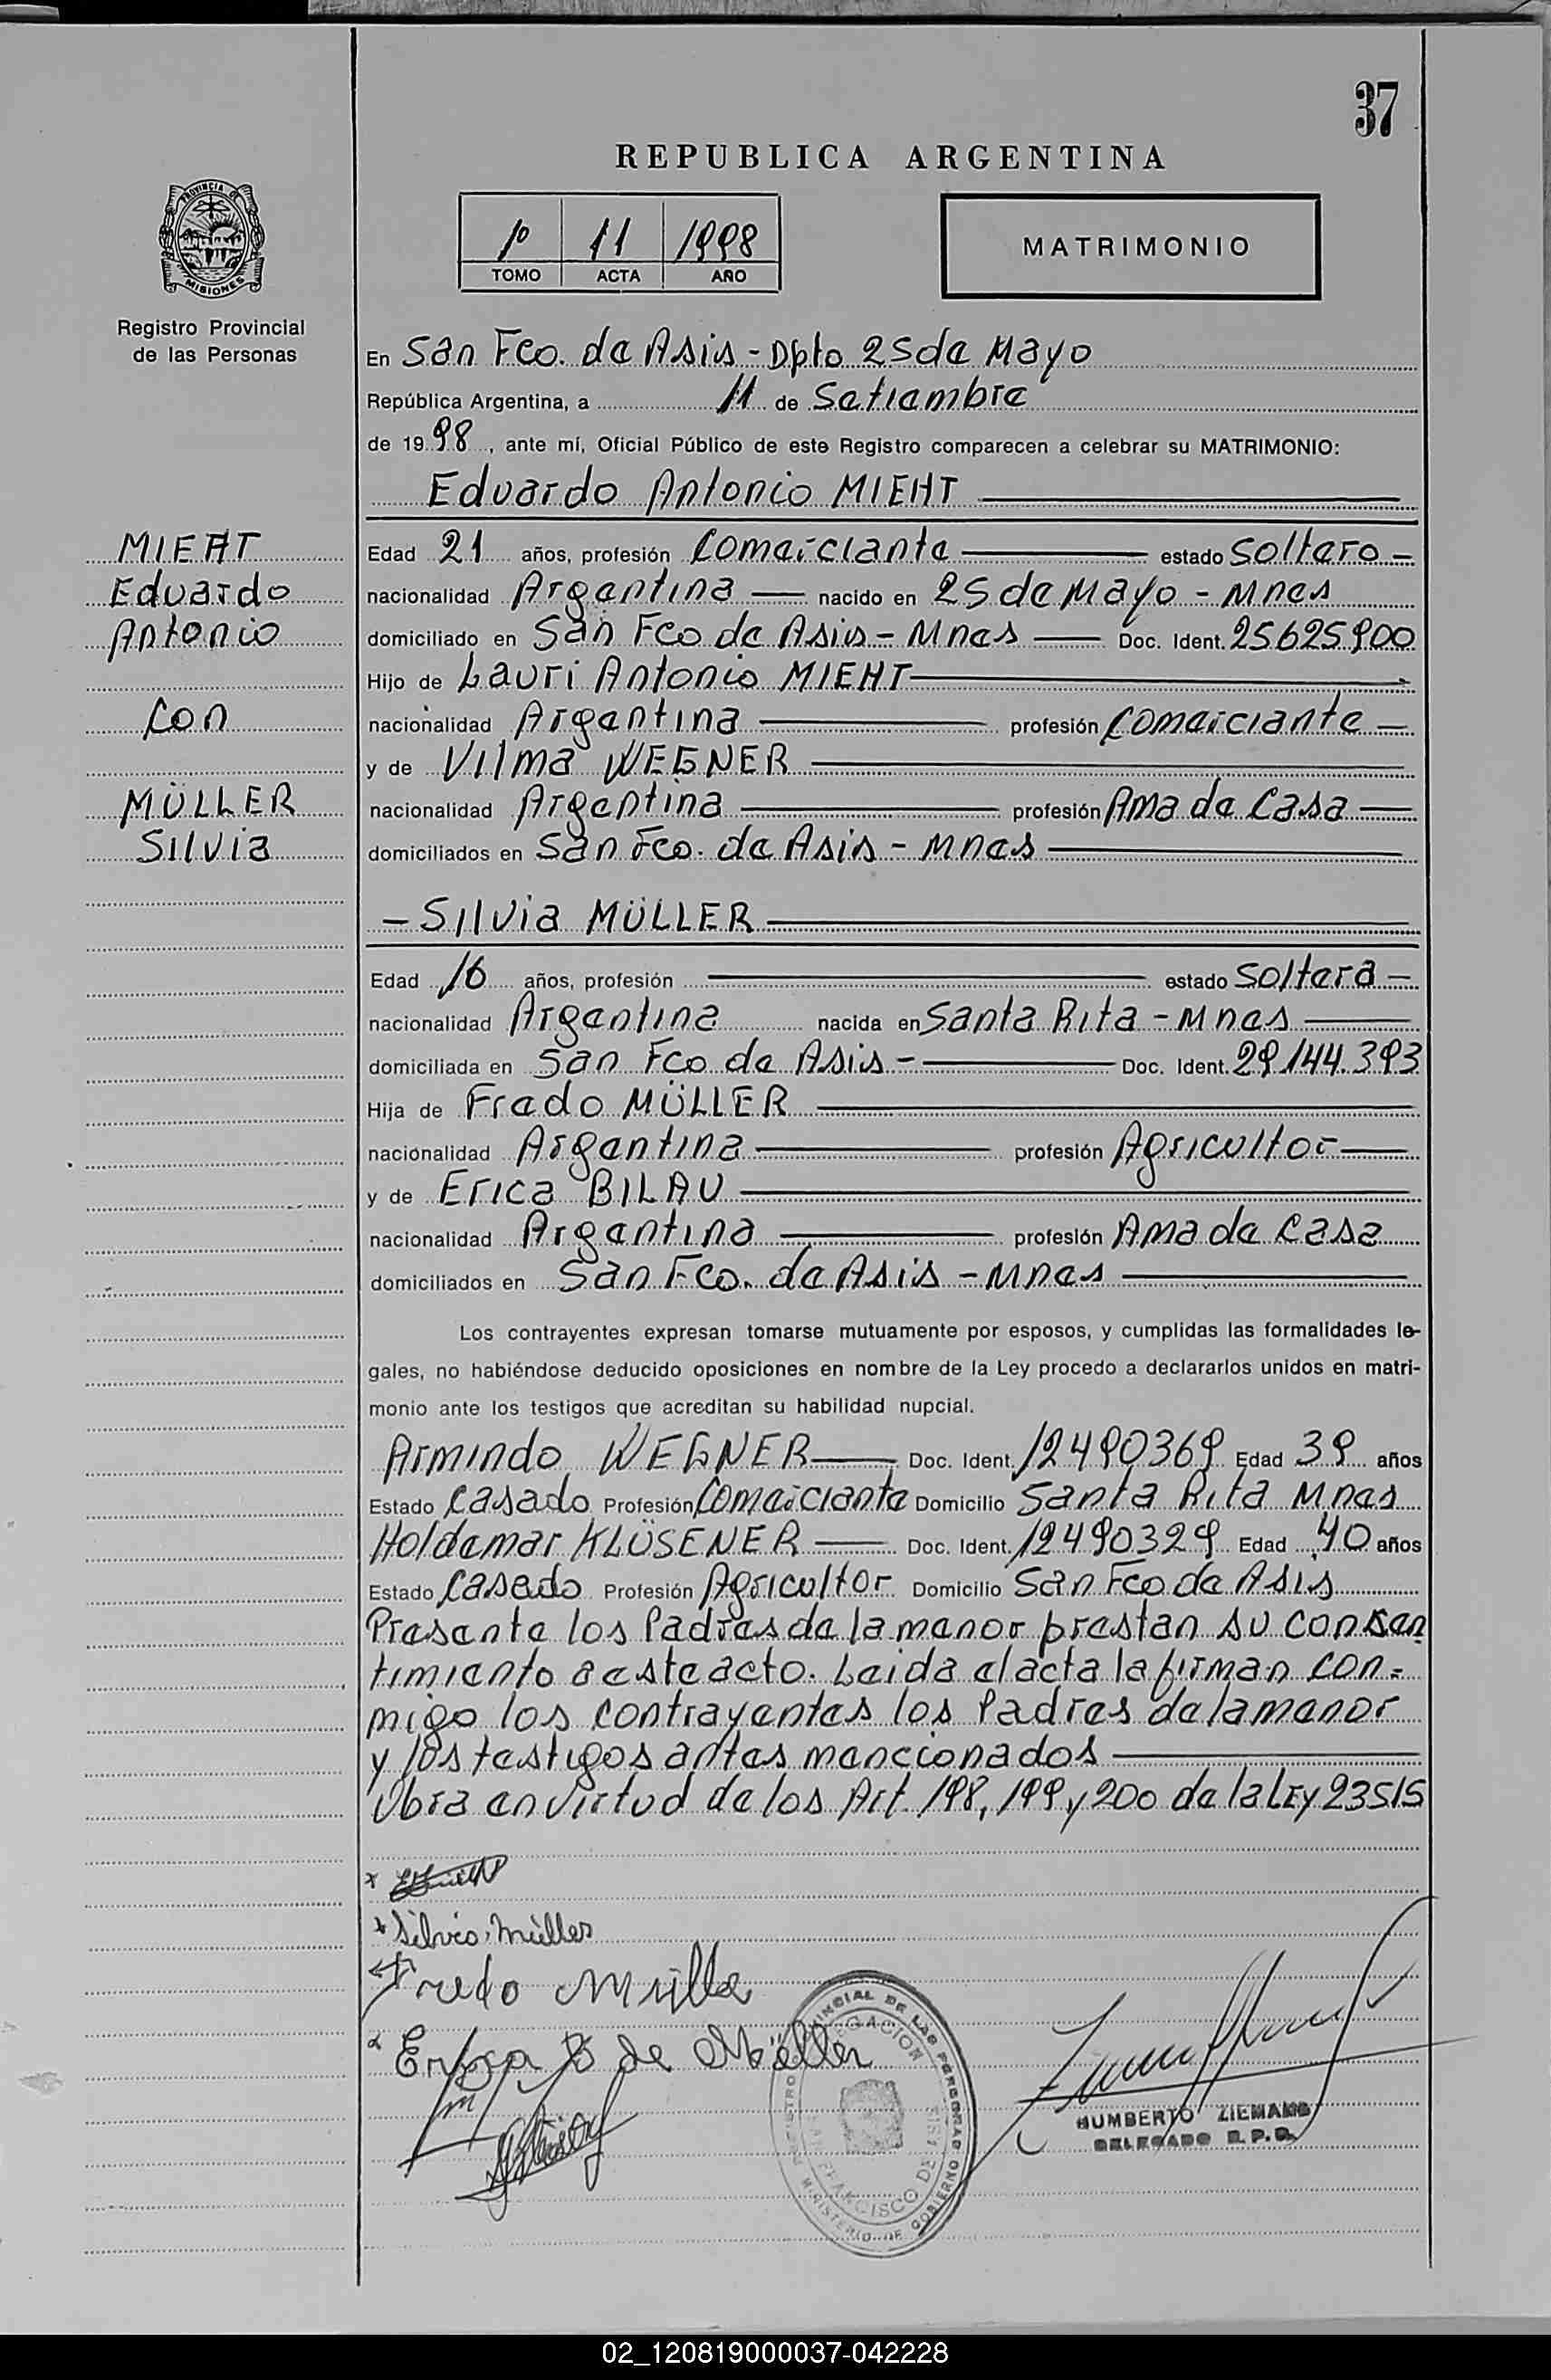 37
REPUBLICA ARGENTINA
PROVINCIA DE
MISIONES
1º 11 1998
TOMO ACTA AÑO
MATRIMONIO
Registro Provincial
de las Personas
En San Fco. de Asis - Dpto 25 de Mayo
República Argentina, a 11 de Setiembre
de 1998, ante mí, Oficial Público de este Registro comparecen a celebrar su MATRIMONIO:
Eduardo Antonio MIEHT
MIEHT
Eduardo
Antonio
con
MÜLLER
Silvia
Edad 21 años, profesión Comerciante estado soltero -
nacionalidad Argentina nacido en 25 de Mayo - Mnes
domiciliado en San Fco de Asis - Mnes Doc. Ident. 25625900
Hijo de Lauri Antonio MIEHT
nacionalidad Argentina profesión Comerciante -
y de Vilma WEGNER
nacionalidad Argentina profesión Ama de Casa
domiciliados en San Fco. de Asis - Mnes
- Silvia MÜLLER
Edad 16 años, profesión estado soltera -
nacionalidad Argentina nacida en Santa Rita - Mnes
domiciliada en San Fco de Asis - Doc. Ident. 29.144.393
Hija de Fredo MÜLLER
nacionalidad Argentina profesión Agricultor
y de Erica BILAU
nacionalidad Argentina profesión Ama de Casa
domiciliados en San Fco. de Asis - Mnes
Los contrayentes expresan tomarse mutuamente por esposos, y cumplidas las formalidades le-
gales, no habiéndose deducido oposiciones en nombre de la Ley procedo a declararlos unidos en matri-
monio ante los testigos que acreditan su habilidad nupcial.
Armindo WEGNER Doc. Ident. 12490369 Edad 39 años
Estado Casado Profesión Comerciante Domicilio Santa Rita Mnes
Holdemar KLÜSENER Doc. Ident. 12490329 Edad 40 años
Estado Casado Profesión Agricultor Domicilio San Fco de Asis
Presente los Padres de la menor prestan su consen
timiento a este acto. Leida el acta la firman con-
migo los contrayentes los Padres de la menor
y los testigos antes mencionados
Obra en virtud de los Art. 198, 199 y 200 de la LEY 23515
Silvia Müller
Fredo Müller
Erica B de Müller
HUMBERTO ZIEMANN
DELEGADO R.P.P.
02_120819000037-042228